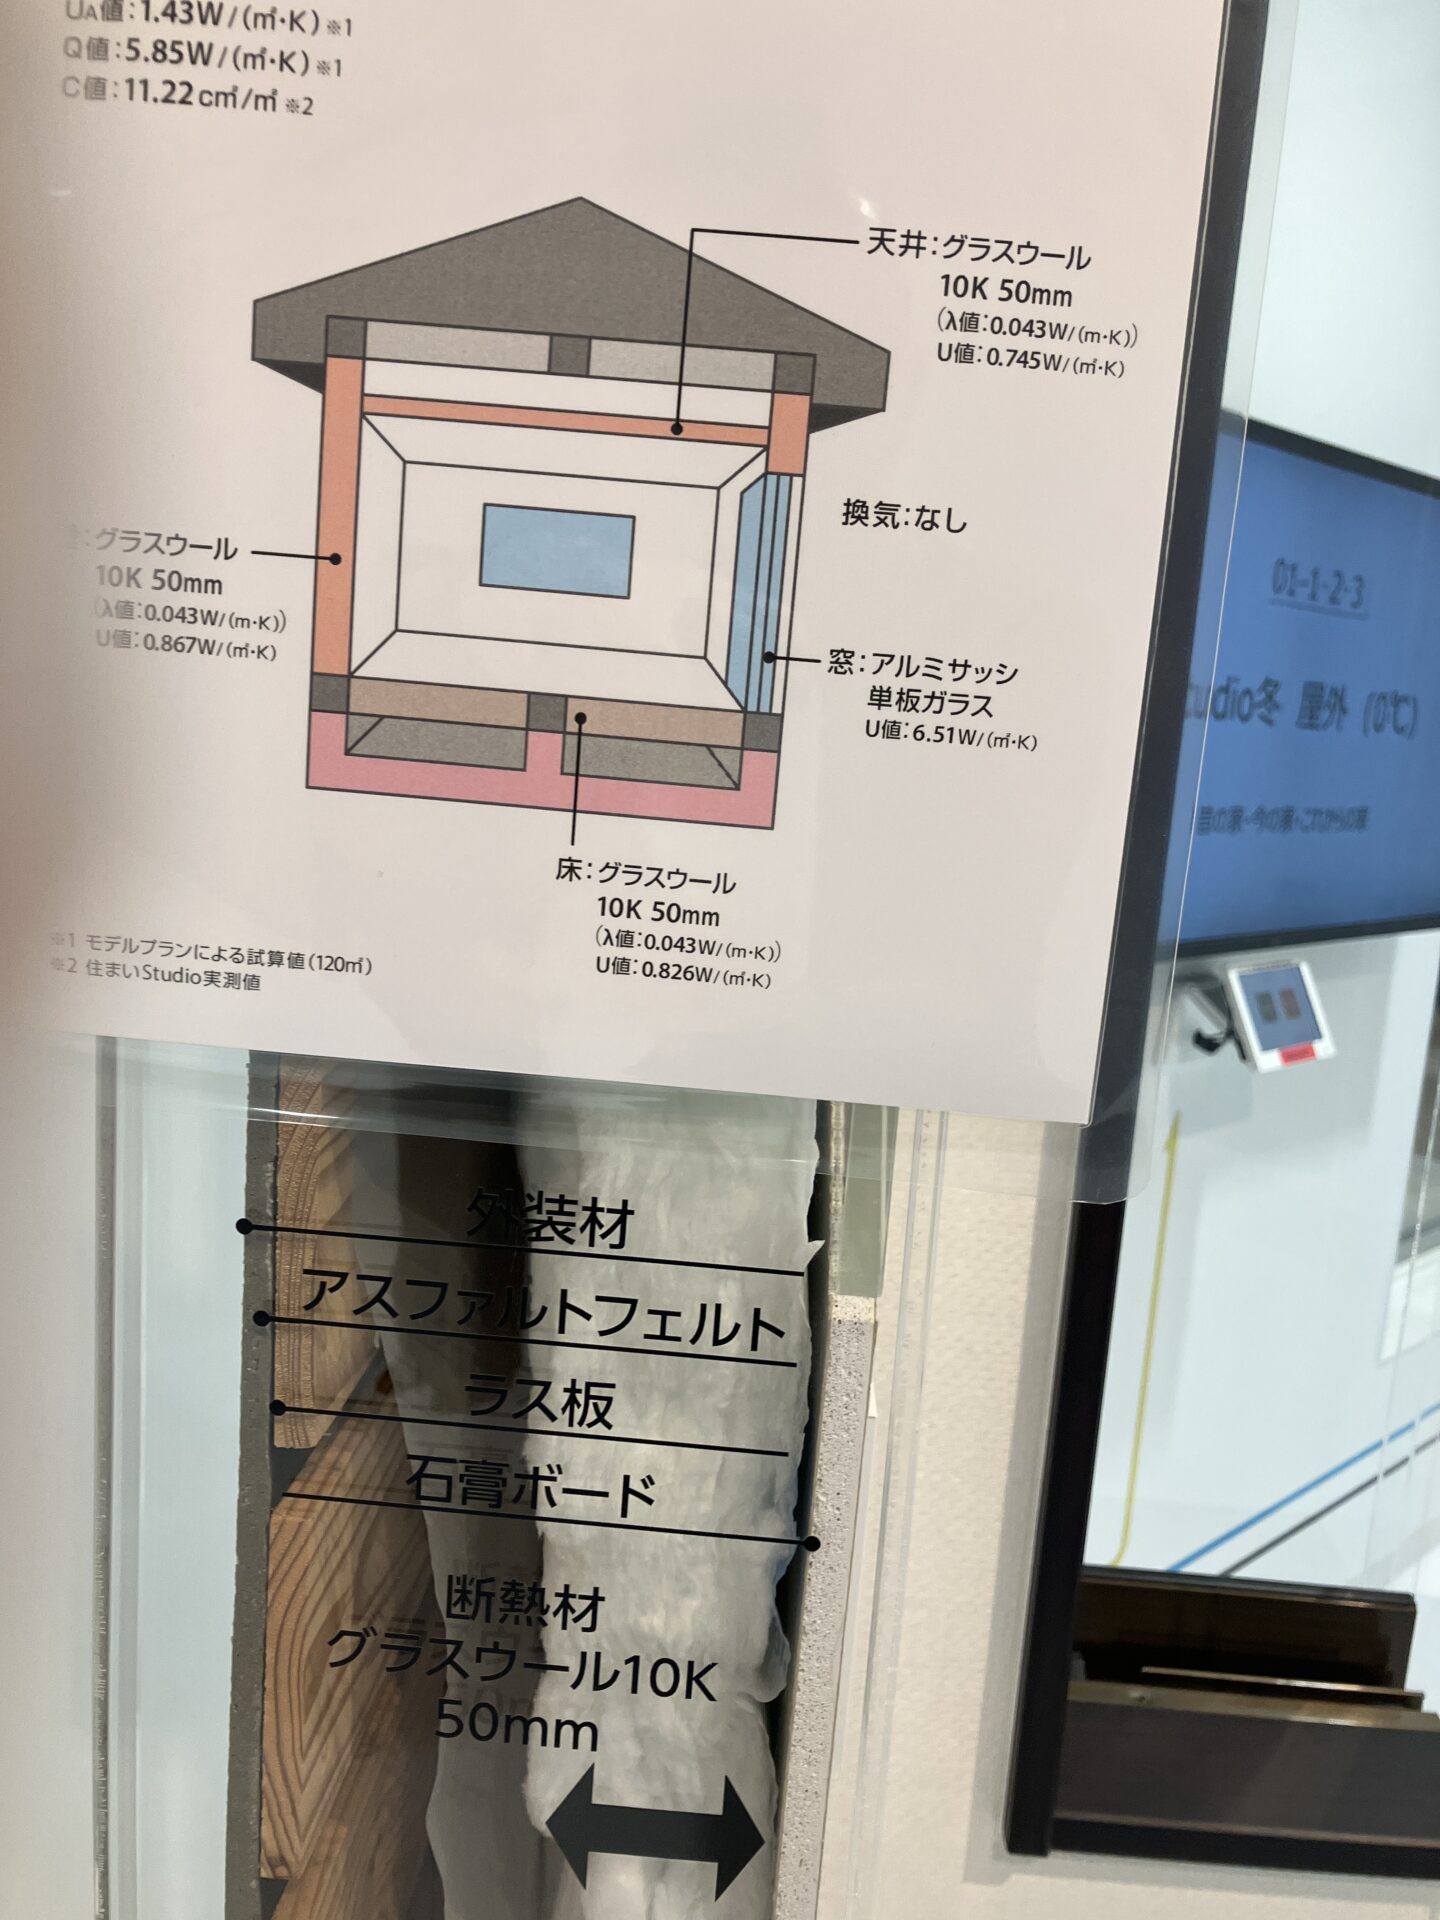 UA値：1.43W/(㎡・K)※1
Q値：5.85W/(㎡・K)※1
C値：11.22c㎡/㎡※2
天井：グラスウール
10K 50mm
(λ値：0.043W/(m・K))
U値：0.745W/(㎡・K)
換気：なし
：グラスウール
10K 50mm
(λ値：0.043W/(m・K))
U値：0.867W/(㎡・K)
窓：アルミサッシ
単板ガラス
U値：6.51W/(㎡・K)
床：グラスウール
10K 50mm
(λ値：0.043W/(m・K))
U値：0.826W/(㎡・K)
※1 モデルプランによる試算値(120㎡)
※2 住まいStudio実測値
01-1-2-3
tudio冬 屋外 (0℃)
昔の家・今の家・これからの家
外装材
アスファルトフェルト
ラス板
石膏ボード
断熱材
グラスウール10K
50mm